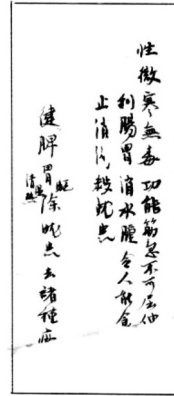 性微寒無毒 功能筋急不可屈伸
利腸胃消水腫令人能食
止消渴殺蚘虫
健脾胃除蚘虫去諸種症
清濕熱